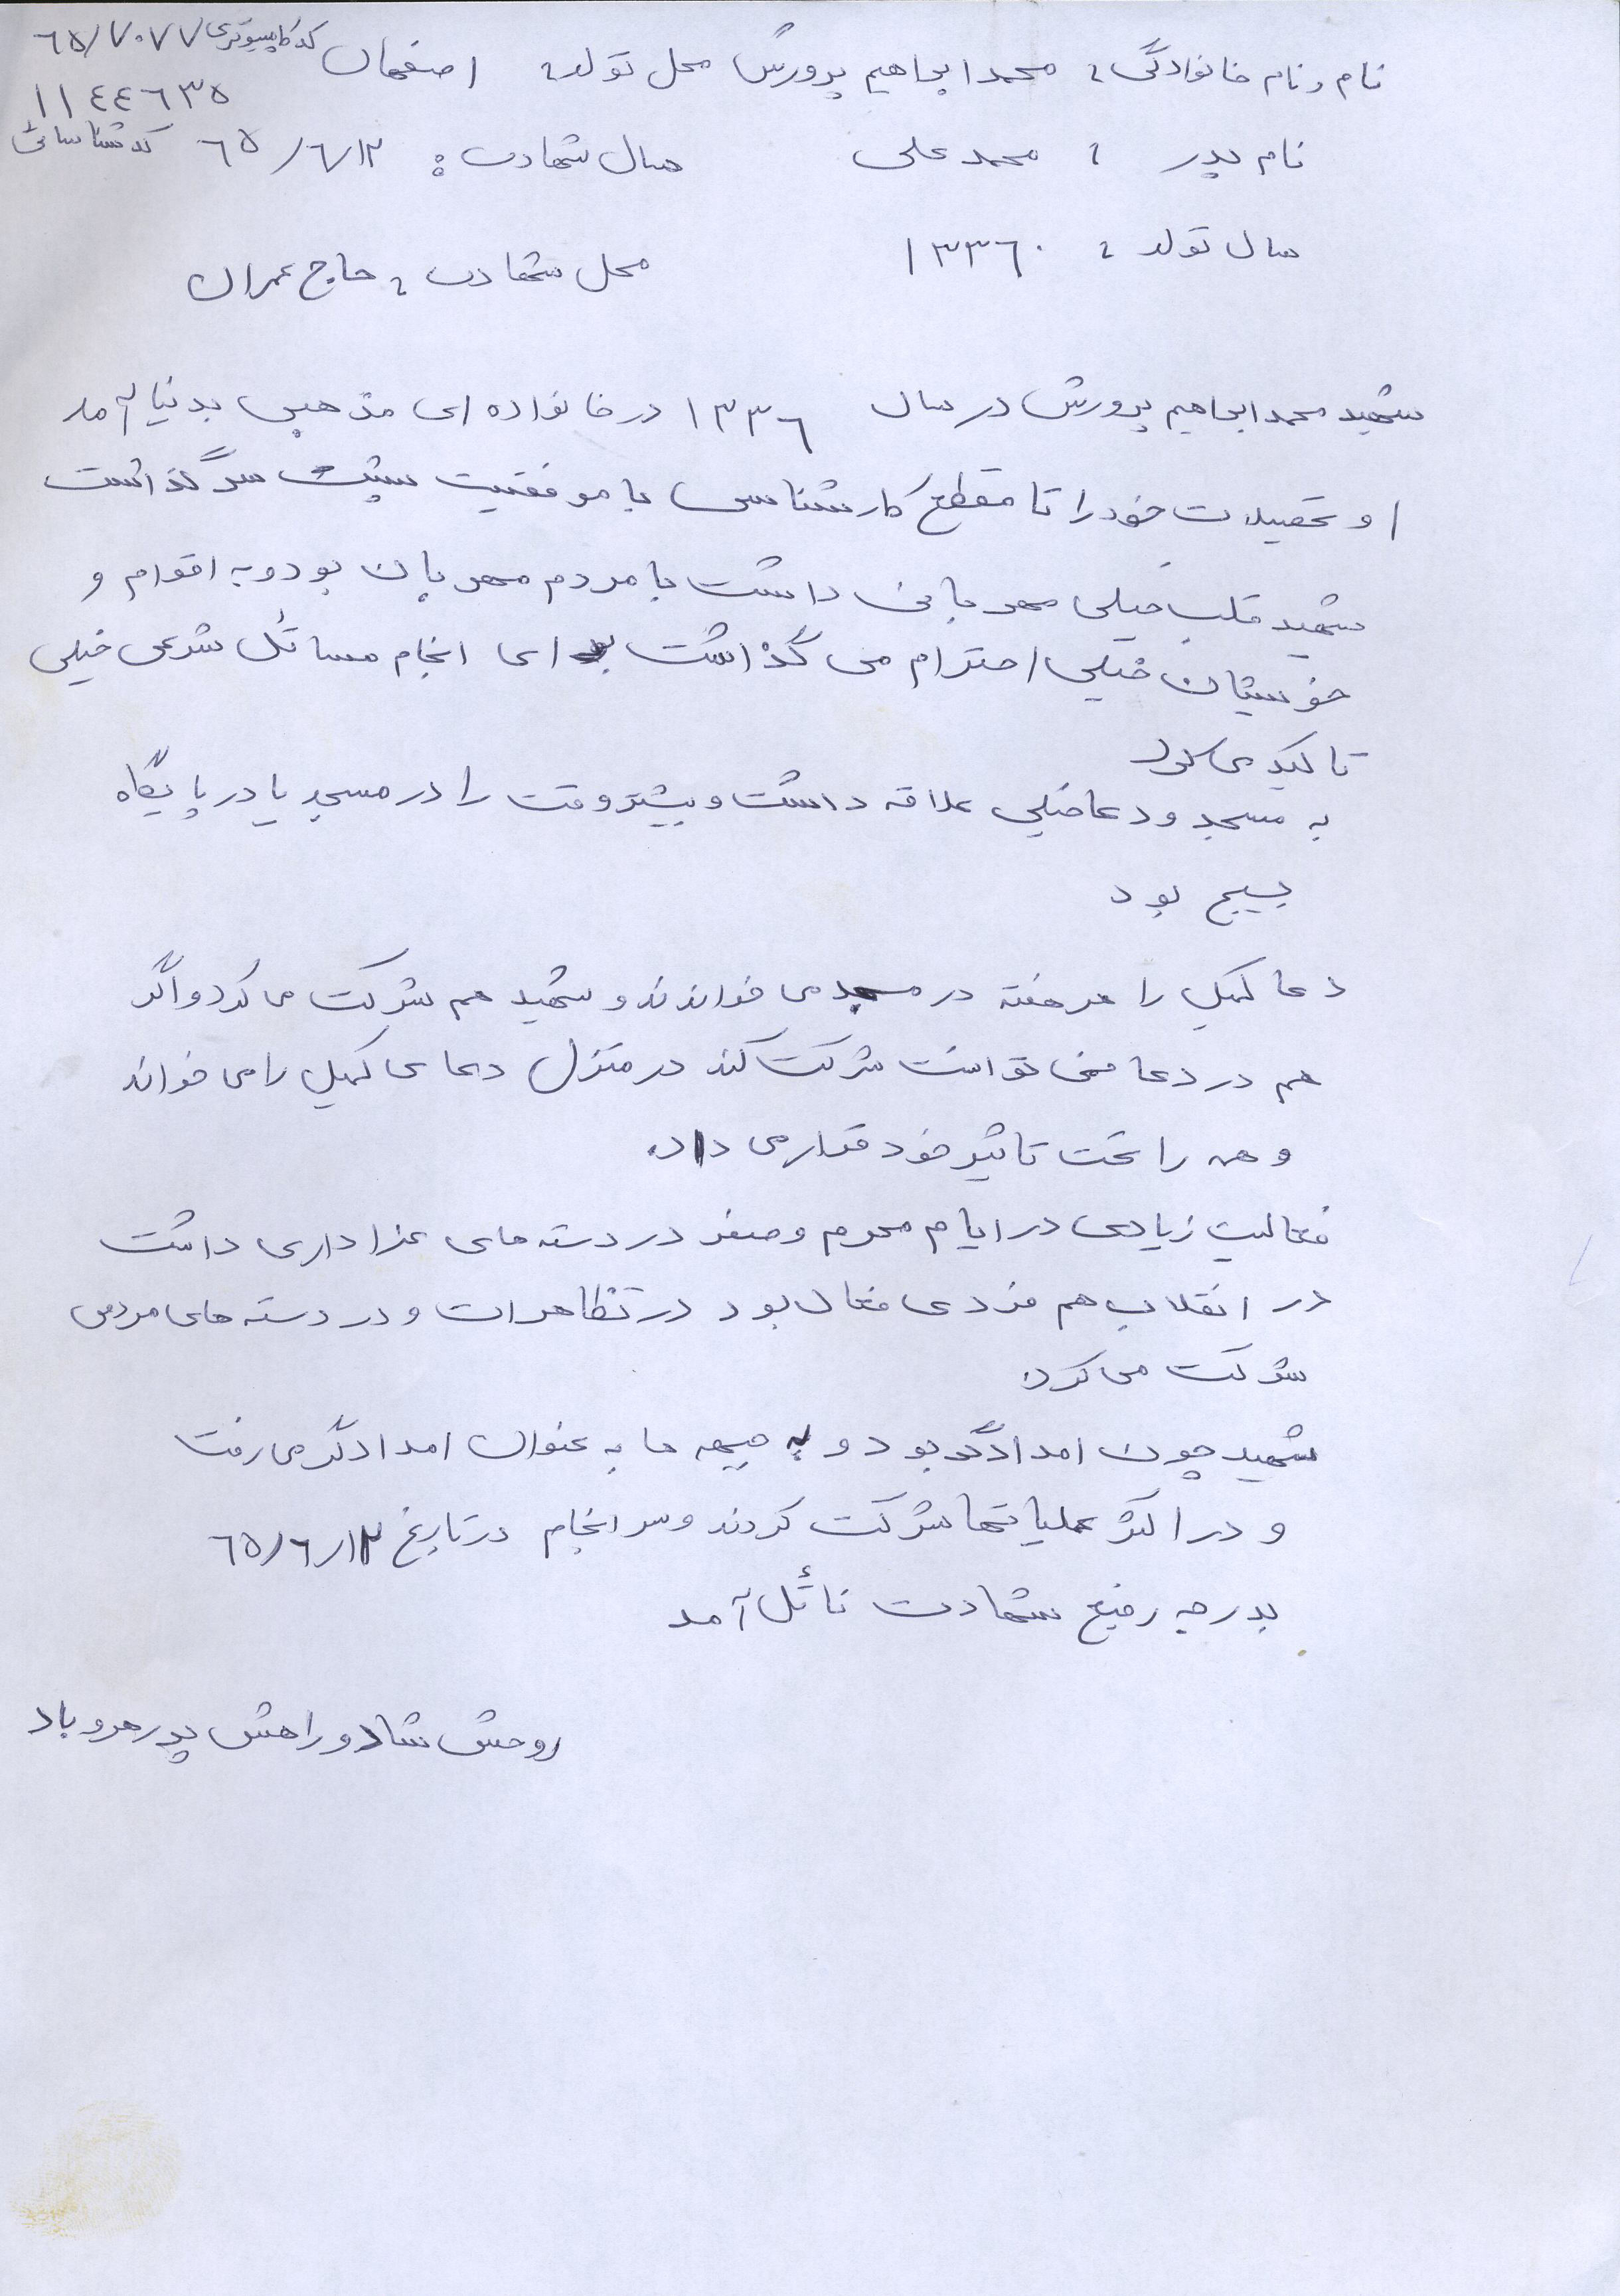 نام و نام خانوادگی : محمد ابراهیم پرورش محل تولد : اصفهان کد کامپیوتری ٦٥/٧٠٧٧
١١٤٤٦٣٥
نام پدر : محمد علی سال شهادت : ٦٥/٦/١٢ کد شناسائی
سال تولد : ١٣٣٦٠
محل شهادت : حاج عمران
شهید محمد ابراهیم پرورش در سال ١٣٣٦ در خانواده ای مذهبی بدنیا آمد
او تحصیلات خود را تا مقطع کارشناسی با موفقیت پشت سر گذاشت
شهید قلب خیلی مهربانی داشت با مردم مهربان بود و به اقوام و
خویشان خیلی احترام می گذاشت برای انجام مسائل شرعی خیلی
تاکید می کرد
به مسجد و دعا خیلی علاقه داشت و بیشتر وقت را در مسجد یا در پایگاه
بسیج بود
دعا کمیل را هر هفته در مسجد می خواندند و شهید هم شرکت می کرد و اگر
هم در دعا نمی توانست شرکت کند در منزل دعای کمیل را می خواند
و همه را تحت تاثیر خود قرار می داد.
فعالیت زیادی در ایام محرم و صفر در دسته های عزاداری داشت
در انقلاب هم فردی فعال بود در تظاهرات و در دسته های مردمی
شرکت می کرد.
شهید چون امدادگر بود و به جبهه ها به عنوان امدادگر می رفت
و در اکثر عملیاتها شرکت کردند و سرانجام در تاریخ ٦٥/٦/١٢
بدرجه رفیع شهادت نائل آمد
روحش شاد و راهش پر رهرو باد